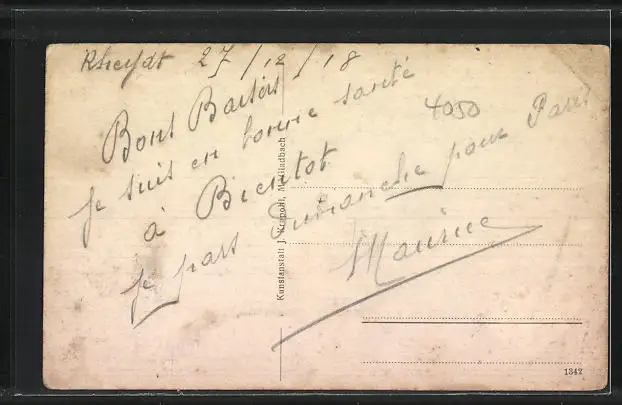 Rheydt 27/12/18
Bons Baisers
je suis en bonne santé
à Bientot
je pars Dimanche pour Paris
Maurice
4050
Kunstanstalt J. Krapohl, M.-Gladbach
1342